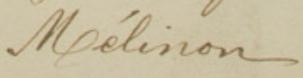 Mélinon